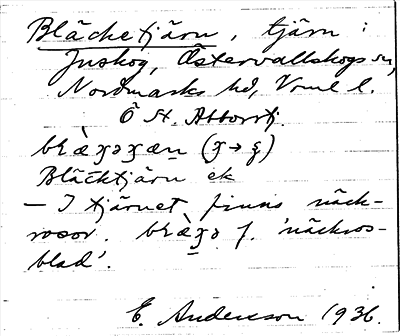 Bläcketjärn, tjärn i
Juskog, Östervallskogs sn,
Nordmarks hd, Vrml l.
Ö St. Abborrtj.
Bläcktjärn ek
— I tjärnet finns näck-
rosor. f. 'näckros-
blad'.
E. Andersson 1936.